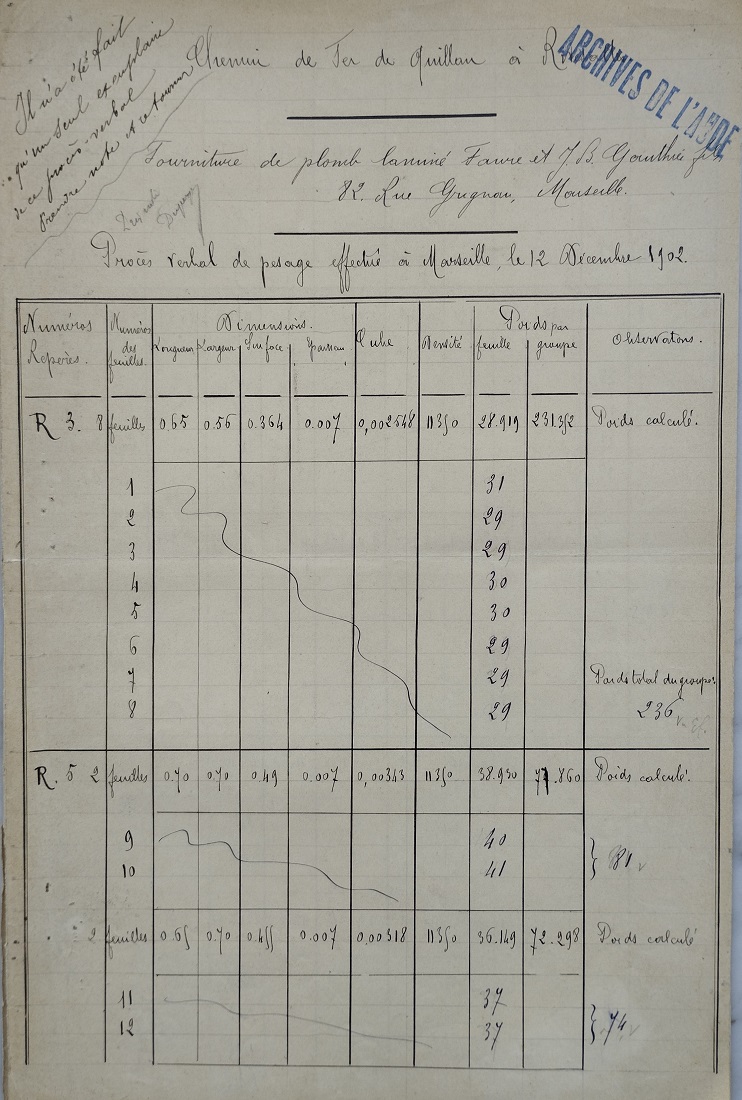 Il n'a été fait
qu'un seul exemplaire
de ce procès-verbal
Prendre note et retourner
Chemin de Fer de Quillan à
ARCHIVES DE L'AUDE
Fourniture de plomb laminé Faure et J.B. Gouthié
82. Rue Grignan, Marseille.
Procès verbal de pesage effectué à Marseille, le 12 Décembre 1902.
Numéros Repères. Numéros des feuilles Dimensions. Cube Densité Poids par Observatons.
Longueur Largeur Surface Epaisseur feuille groupe
R 3. 8 feuilles 0.65 0.56 0.364 0.007 0,002548 11350 28.919 231.352 Poids calculé.
1 31
2 29
3 29
4 30
5 30
6 29
7 29 Poids total du groupe:
8 29 236
R. 5 2 feuilles 0.70 0.70 0.49 0.007 0,00343 11350 38.930 77.860 Poids calculé.
9 40
10 41 } 81
2 feuilles 0.65 0.70 0.455 0.007 0,00318 11350 36.149 72.298 Poids calculé
11 37
12 37 } 74